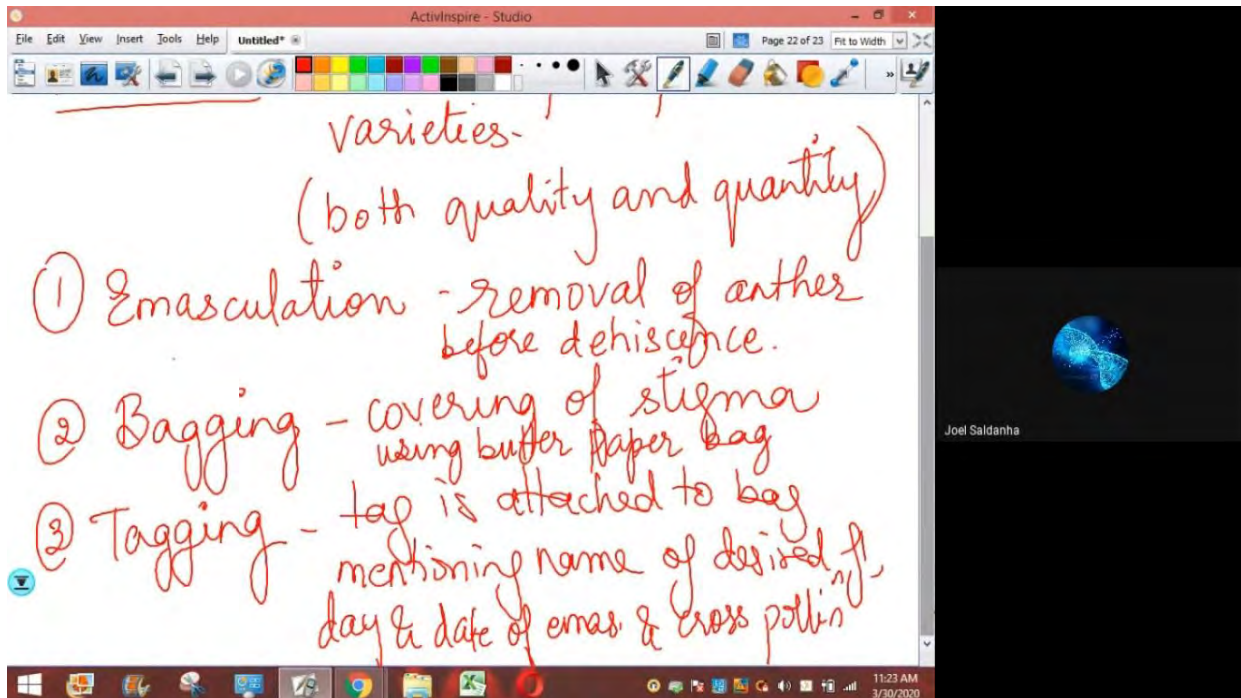 ActivInspire - Studio
File Edit View Insert Tools Help Untitled* Page 22 of 23 Fit to Width
varieties-
(both quality and quantity)
① Emasculation - removal of anther
before dehiscence.
② Bagging - covering of stigma
using butter paper bag
③ Tagging - tag is attached to bag
mentioning name of desired fl,
day & date of emas. & cross pollinⁿ
Joel Saldanha
11:23 AM
3/30/2020